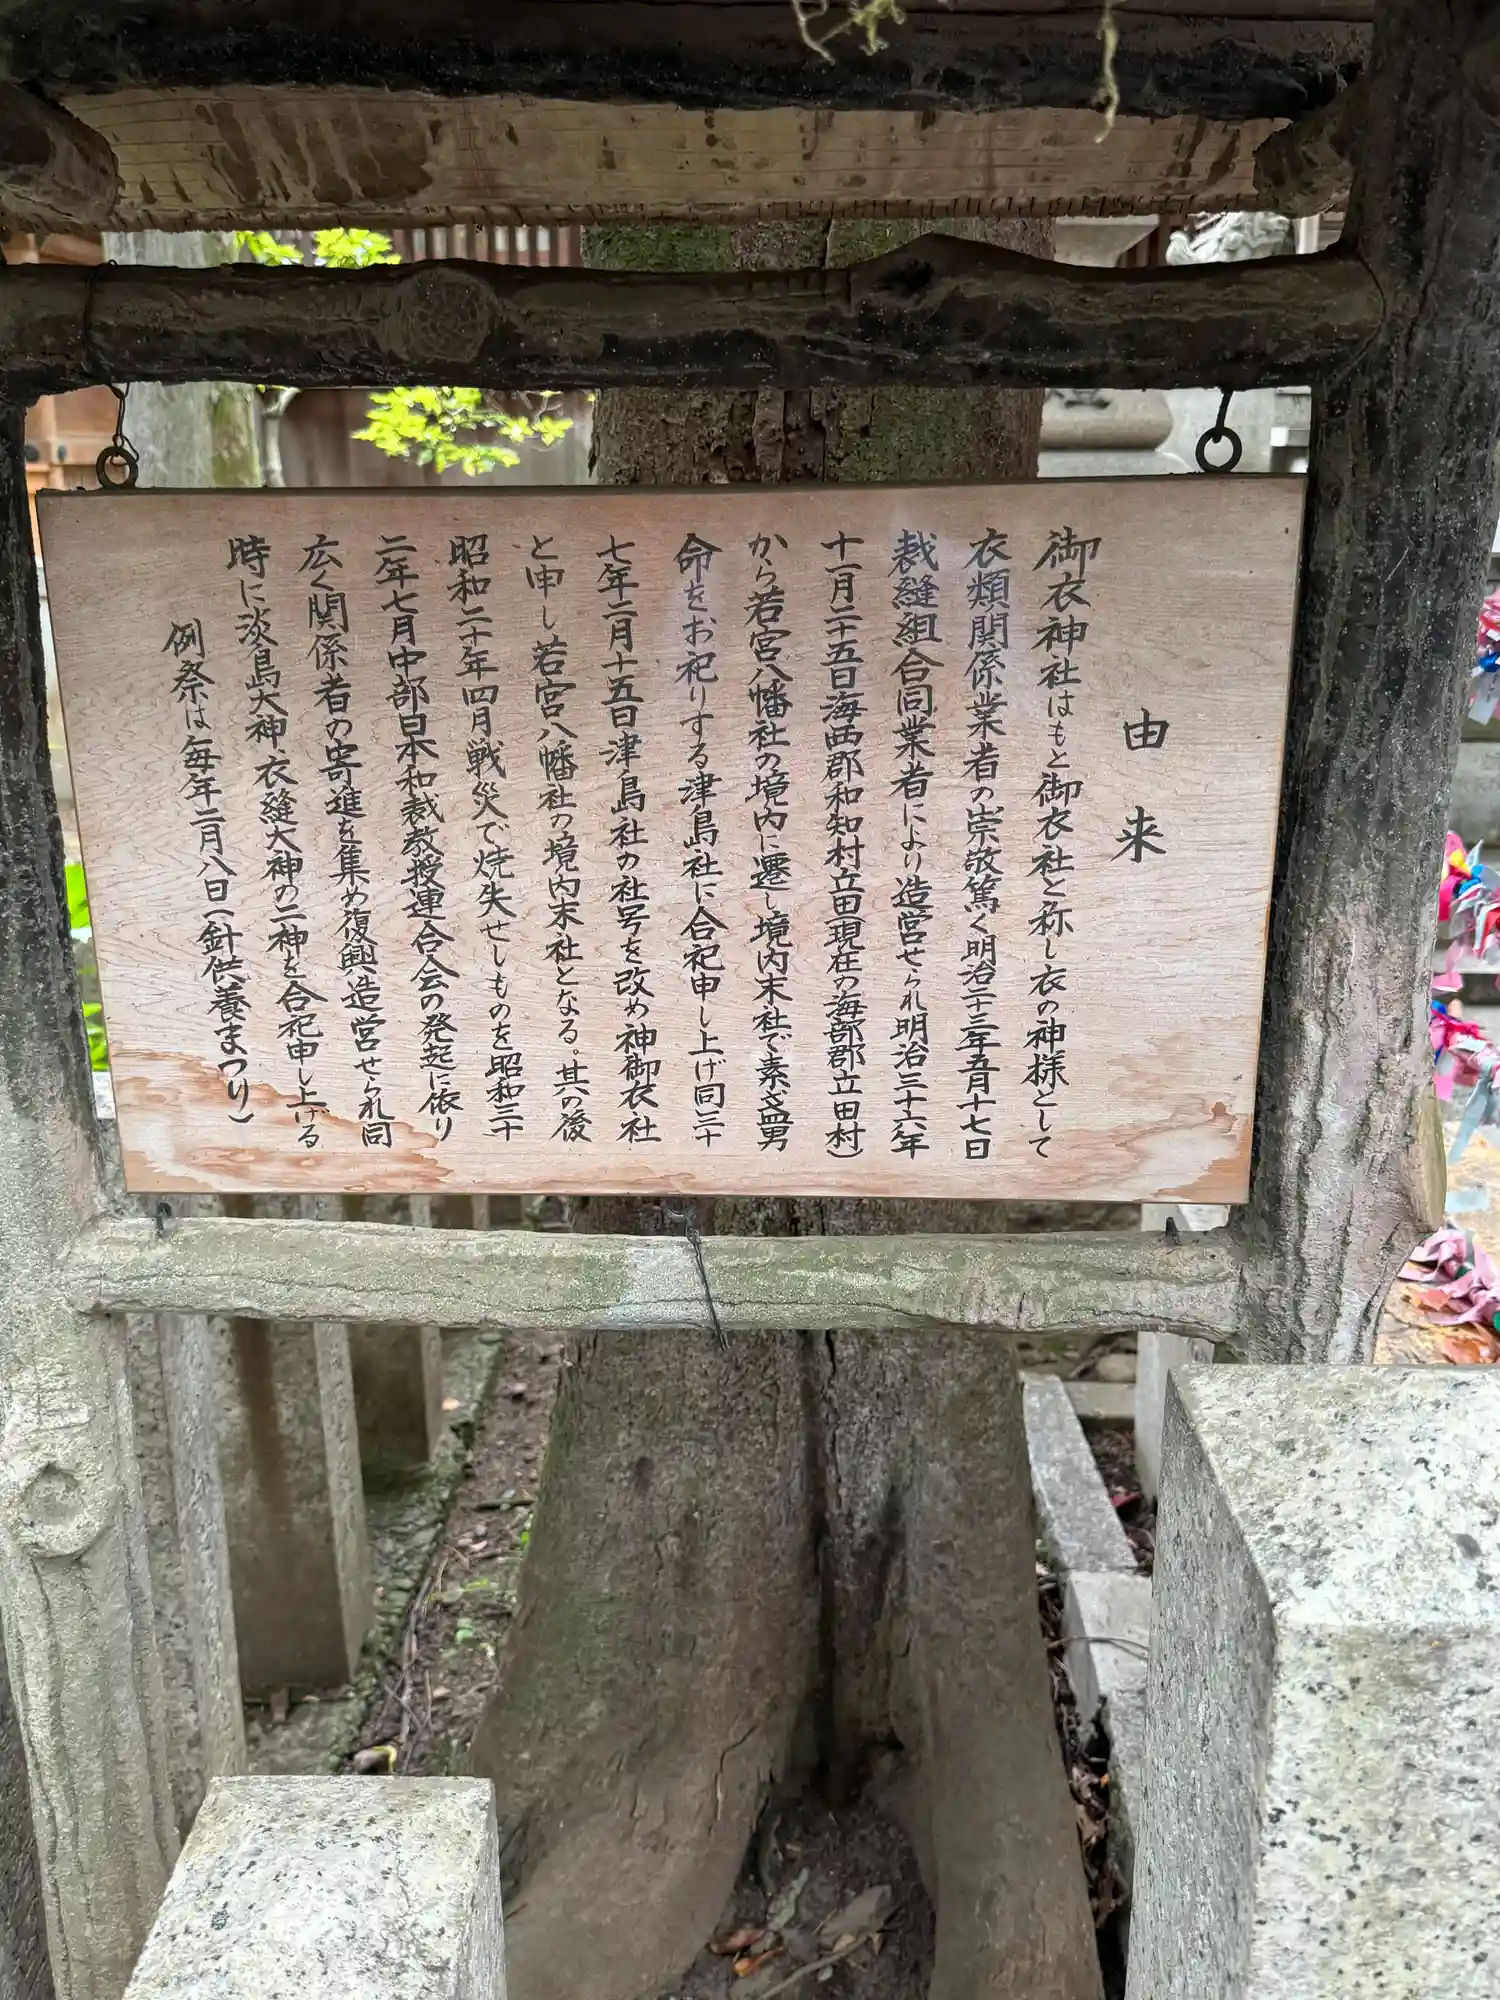 由来
御衣神社はもと御衣社と称し衣の神様として
衣類関係業者の崇敬篤く明治二十三年五月十七日
裁縫組合同業者により造営せられ明治三十六年
十一月二十五日海西郡和知村立田現在の海部郡立田村)
から若宮八幡社の境内に遷し境内末社で素盞男
命をお祀りする津島社に合祀申し上げ同三十
七年二月十五日津島社の社号を改め神御衣社
と申し若宮八幡社の境内末社となる。其の後
昭和二十年四月戦災で焼失せしものを昭和三十
二年七月中部日本和裁教授連合会の発起に依り
広く関係者の寄進を集め復興造営せられ同
時に淡島大神衣縫大神の二神を合祀申し上げる
例祭は毎年二月八日(針供養まつり)